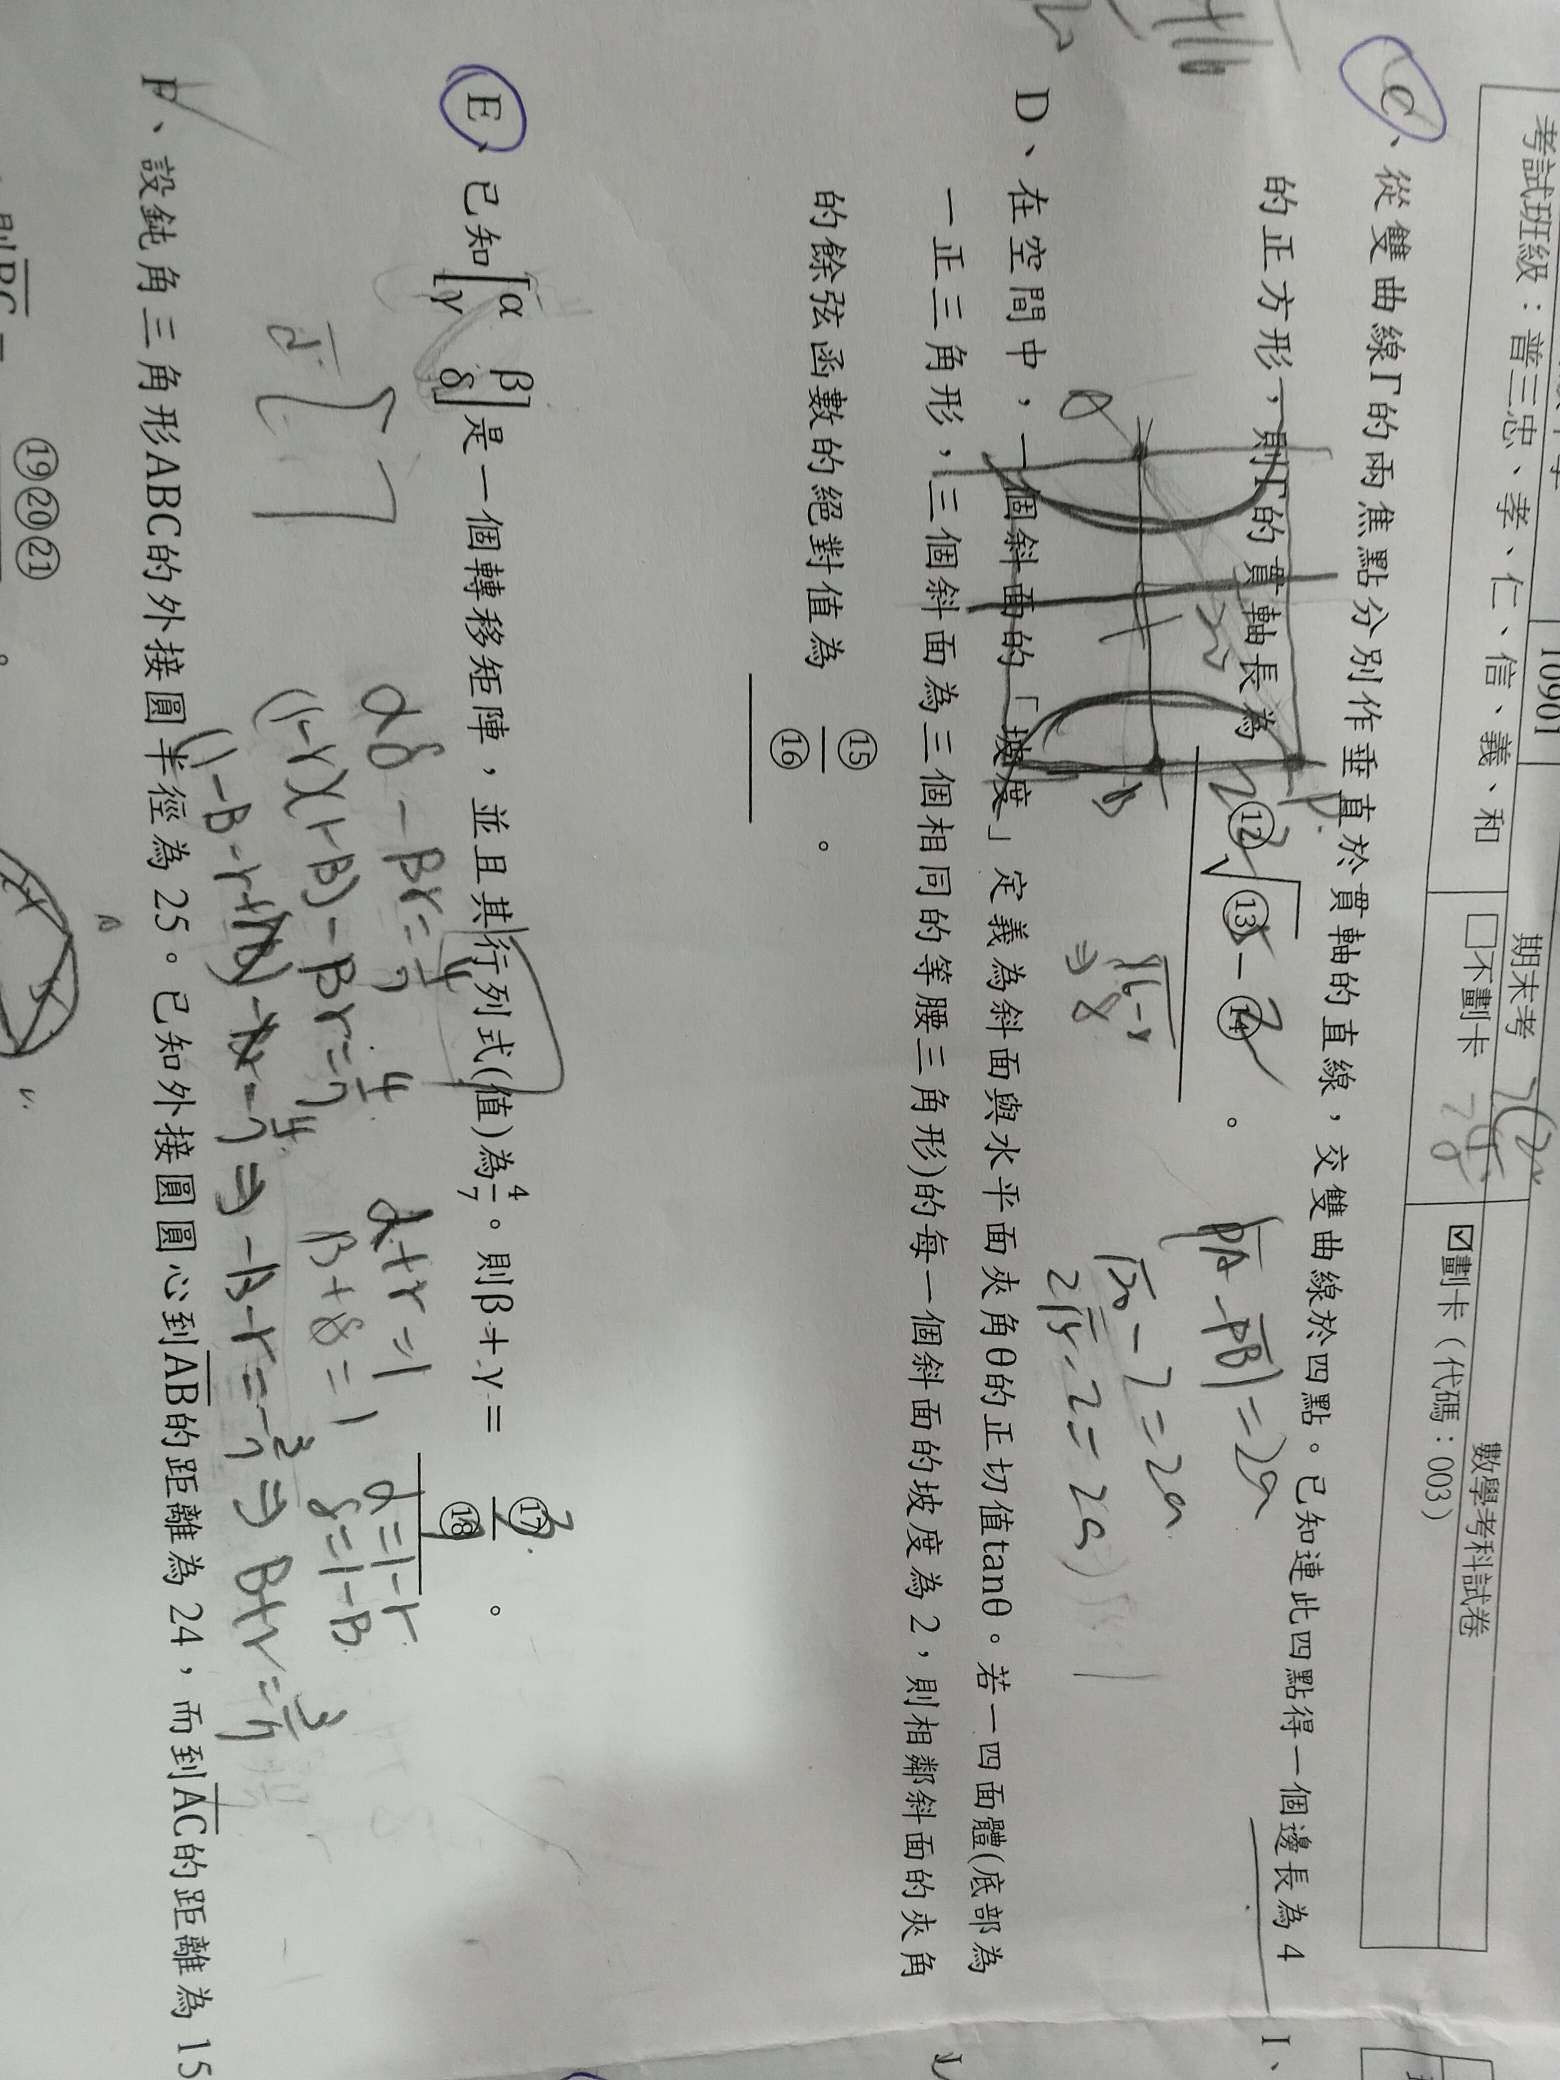 10901
期末考
數學考科試卷
考試班級：普三忠、孝、仁、信、義、和
□不劃卡
☑劃卡（代碼：003）
C、從雙曲線Γ的兩焦點分別作垂直於貫軸的直線，交雙曲線於四點。已知連此四點得一個邊長為 4
的正方形，則Γ的貫軸長為 ⑫√⑬－⑭ 。
A
B
P
|PA - PB| = 2a
√20 - 2 = 2a
2√5 - 2 = 2a
D、在空間中，一個斜面的「坡度」定義為斜面與水平面夾角θ的正切值tanθ。若一四面體(底部為
一正三角形，三個斜面為三個相同的等腰三角形)的每一個斜面的坡度為 2，則相鄰斜面的夾角
的餘弦函數的絕對值為 ⑮/⑯ 。
E、已知[α β
γ δ]是一個轉移矩陣，並且其行列式(值)為4/7。則β+γ= ⑰/⑱ 。
3
7
αδ - βr = 4/7
(1-r)(1-B) - βr = 4/7
α+r = 1
β+δ = 1
α = 1-r
δ = 1-B
⇒ -B-r = -3/7 ⇒ B+r = 3/7
F、設鈍角三角形ABC的外接圓半徑為 25。已知外接圓圓心到AB的距離為 24，而到AC的距離為 15
，則BC = ⑲⑳㉑ 。
I、